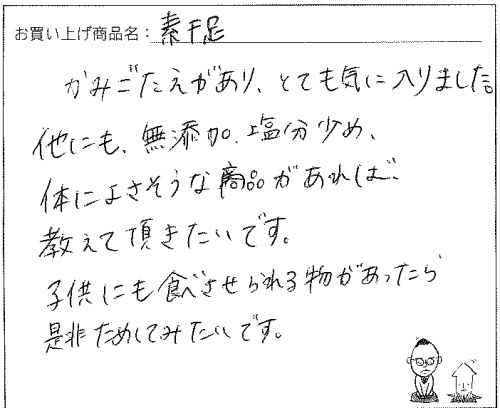 お買い上げ商品名：素干足
かみごたえがあり、とても気に入りました。
他にも、無添加、塩分少め、
体によさそうな商品があれば、
教えて頂きたいです。
子供にも食べさせられる物があったら
是非ためしてみたいです。